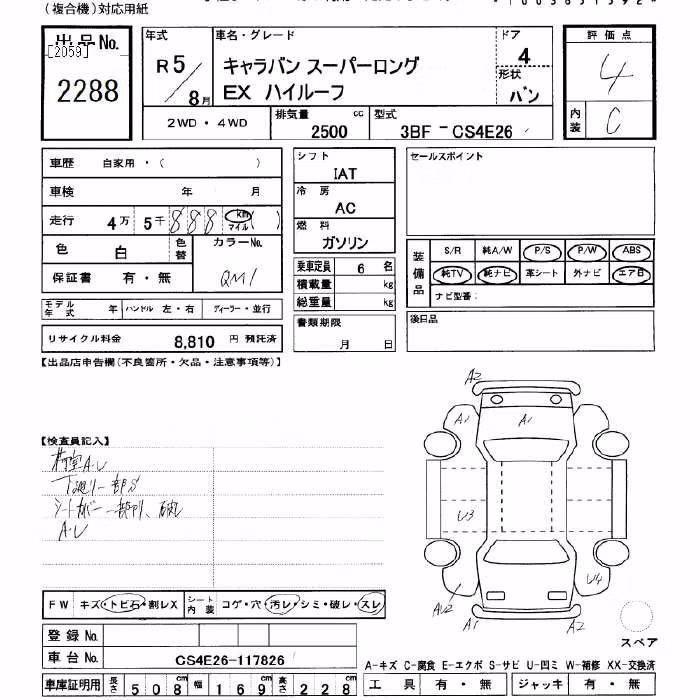 (複合機)対応用紙
出品No.
[2059]
2288
年式
R 5
8月
車名・グレード
キャラバン スーパーロング
EX ハイルーフ
ドア
4
形状
バン
評価点
4
内装 C
2WD・4WD
排気量 cc
2500
型式
3BF -CS4E26
車歴 自家用・( )
車検 年 月
走行 4万 5千 888 km マイル ( )
色 白 色替
カラーNo.
QM1
保証書 有・無
モデル年式 年 ハンドル 左・右 ディーラー・並行
リサイクル料金 8,810 円 預託済
シフト
IAT
冷房
AC
燃料
ガソリン
乗車定員 6 名
積載量 kg
総重量 kg
書類期限
月 日
セールスポイント
装備品
S/R 純A/W P/S P/W ABS
純TV 純ナビ 革シート 外ナビ エアB
ナビ型番:
後日品
【出品店申告欄(不良箇所・欠品・注意事項等)】
【検査員記入】
荷室A.U
下廻り一部S
A.U
A2
A1
A1
U3
U4
AU2
A1
A2
スペア
FW キズ・トビ石・割レX
シート内装 コゲ・穴・汚レ・シミ・破レ・スレ
登録 No.
車台 No. CS4E26-117826
車庫証明用 長さ 508cm 幅 169cm 高さ 228cm
A-キズ C-腐食 E-エクボ S-サビ U-凹ミ W-補修 XX-交換済
工具 有・無 ジャッキ 有・無